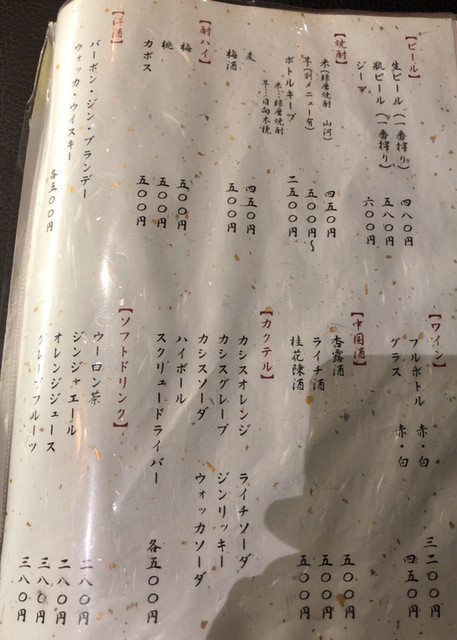 【ビール】
生ビール(一番搾り) 四八〇円
瓶ビール(一番搾り) 五八〇円
ジーマ 六〇〇円
【焼酎】
米(球磨焼酎 山河) 四五〇円
芋(別メニュー有) 五〇〇円〜
ボトルキープ 二五〇〇円
米…球磨焼酎
芋…日向木挽
麦 四五〇円
梅酒 五〇〇円
【酎ハイ】
梅 五〇〇円
桃 五〇〇円
カボス 五〇〇円
【洋酒】
バーボン・ジン・ブランデー
ウォッカ・ウイスキー 各五〇〇円
【ワイン】
フルボトル 赤・白 三二〇〇円
グラス 赤・白 四五〇円
【中国酒】
杏露酒 五〇〇円
ライチ酒 五〇〇円
桂花陳酒 五〇〇円
【カクテル】
カシスオレンジ ライチソーダ
カシスグレープ ジンリッキー
カシスソーダ ウォッカソーダ
ハイボール
スクリュードライバー 各五〇〇円
【ソフトドリンク】
ウーロン茶 二八〇円
ジンジャエール 二八〇円
オレンジジュース 三八〇円
グレープフルーツ 三八〇円